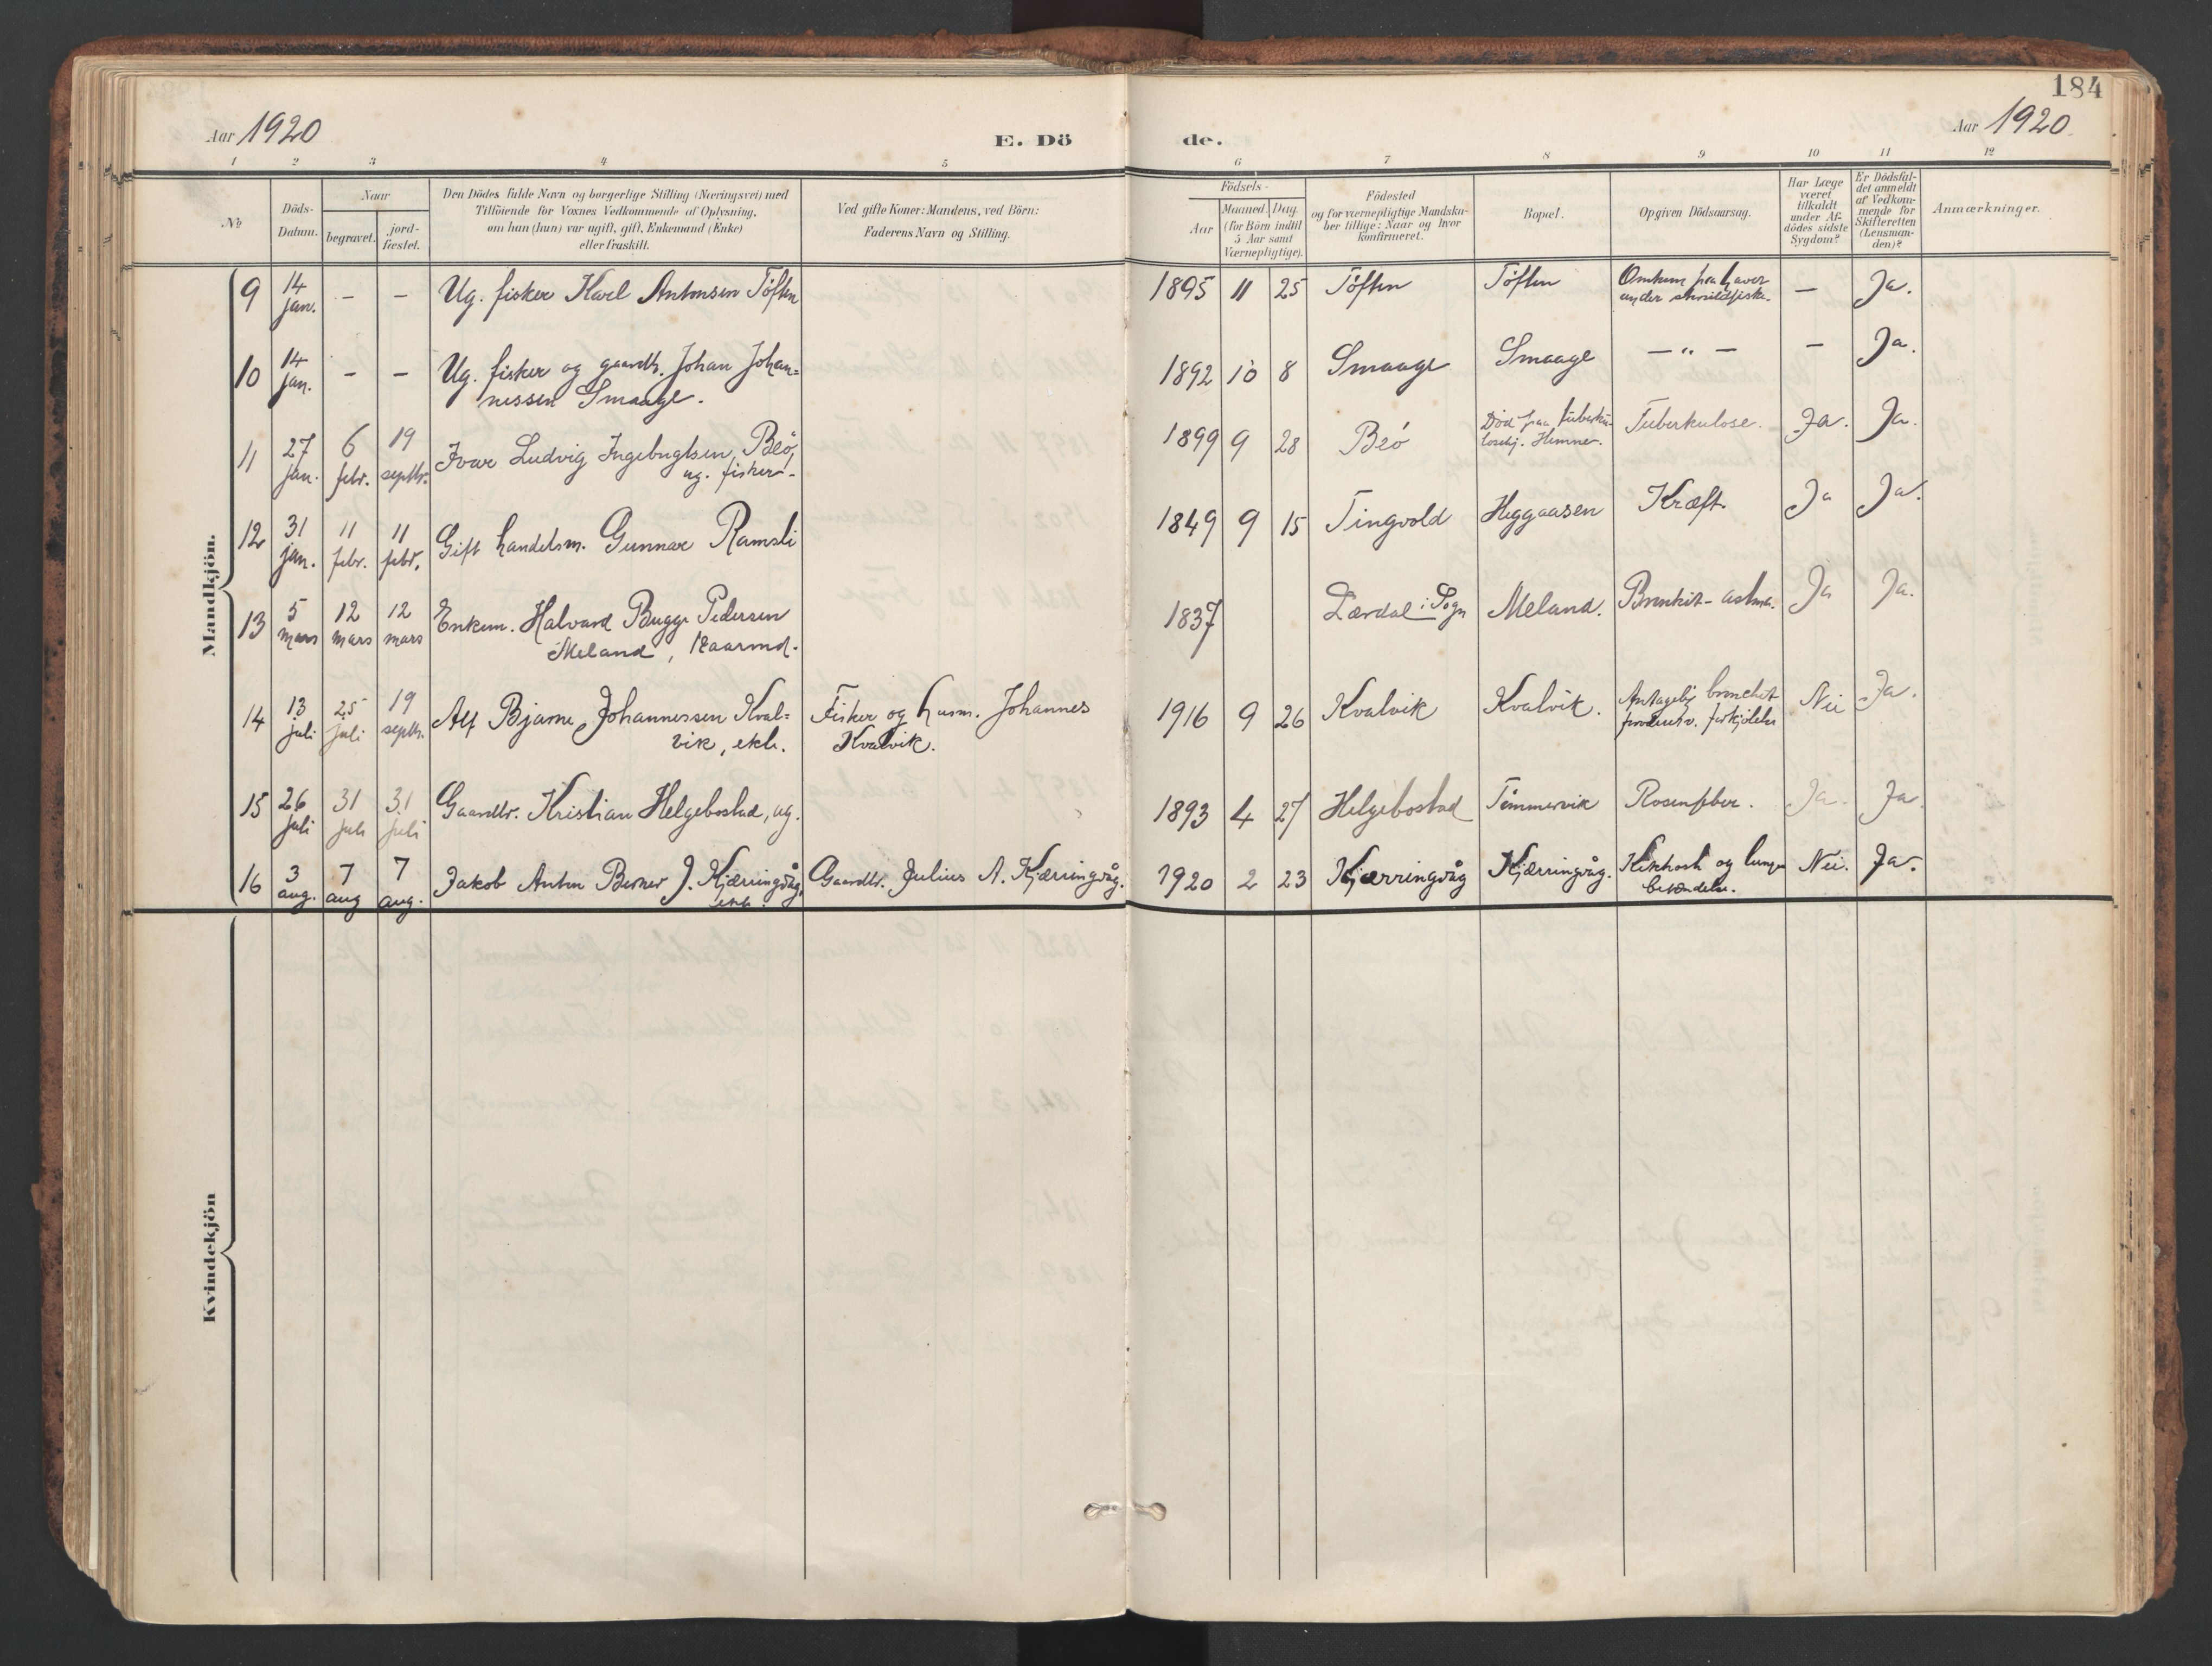 184
Aar 1920
E. Dö
de.
Aar 1920.
1 2 3 4 5 6 7 8 9 10 11 12
№
Döds-
Datum.
Naar
begravet.
jord-
fæstet.
Den Dödes fulde Navn og borgerlige Stilling (Næringsvei) med
Tilföiende for Voxnes Vedkommende af Oplysning,
om han (hun) var ugift, gift, Enkemand (Enke)
eller fraskilt.
Ved gifte Koner: Mandens, ved Börn:
Faderens Navn og Stilling.
Födsels-
Aar
Maaned. Dag.
(for Börn indtil
5 Aar samt
Værnepligtige).
Födested
og for værnepligtige Mandska-
ber tillige: Naar og hvor
konfirmeret.
Bopæl.
Opgiven Dödsaarsag.
Har Læge
været
tilkaldt
under Af-
dödes sidste
Sygdom?
Er Dödsfal-
det anmeldt
af Vedkom-
mende for
Skifteretten
(Lensman-
den)?
Anmærkninger.
Mandkjön.
9 14 jan. – – Ug. fisker Karl Antonsen Töften 1895 11 25 Töften Töften Omkom paa havet
under – Ja.
10 14 jan. – – Ug. fisker og gaardbr. Johan Johan=
nessen Smaage. 1892 10 8 Smaage Smaage — " — – Ja.
11 27 jan. 6 febr. 19 septbr. Ivar Ludvig Ingebrigtsen Beö,
ug. fisker. 1899 9 28 Beö Död paa tuberku-
losehj. Hemne. Tuberkulose. Ja. Ja.
12 31 jan. 11 febr. 11 febr. Gift handelsm. Gunnar Ramsli 1849 9 15 Tingvold Heggaasen Kræft. Ja Ja.
13 5 mars 12 mars 12 mars Enkem. Halvard Bugge Pedersen
Meland, kaarmd. 1837 Lærdal i Sogn Meland. Bronkit-astma. Ja Ja.
14 13 juli 25 juli 19 septbr. Alf Bjarne Johannessen Kval=
vik, ekte. Fisker og husm. Johannes
Kvalvik. 1916 9 26 Kvalvik Kvalvik. Antagelig bronchit
forkjölelse Nei Ja.
15 26 juli 31 juli 31 juli Gaardbr. Kristian Helgebostad, ug. 1893 4 27 Helgebostad Tömmervik Rosenfeber. Ja. Ja
16 3 aug. 7 aug 7 aug. Jakob Anton Berner J. Kjærringvåg,
ekte. Gaardbr. Julius A. Kjærringvåg. 1920 2 23 Kjærringvåg Kjærringvåg. Kikhoste og lunge
betændelse. Nei. Ja.
Kvindekjön